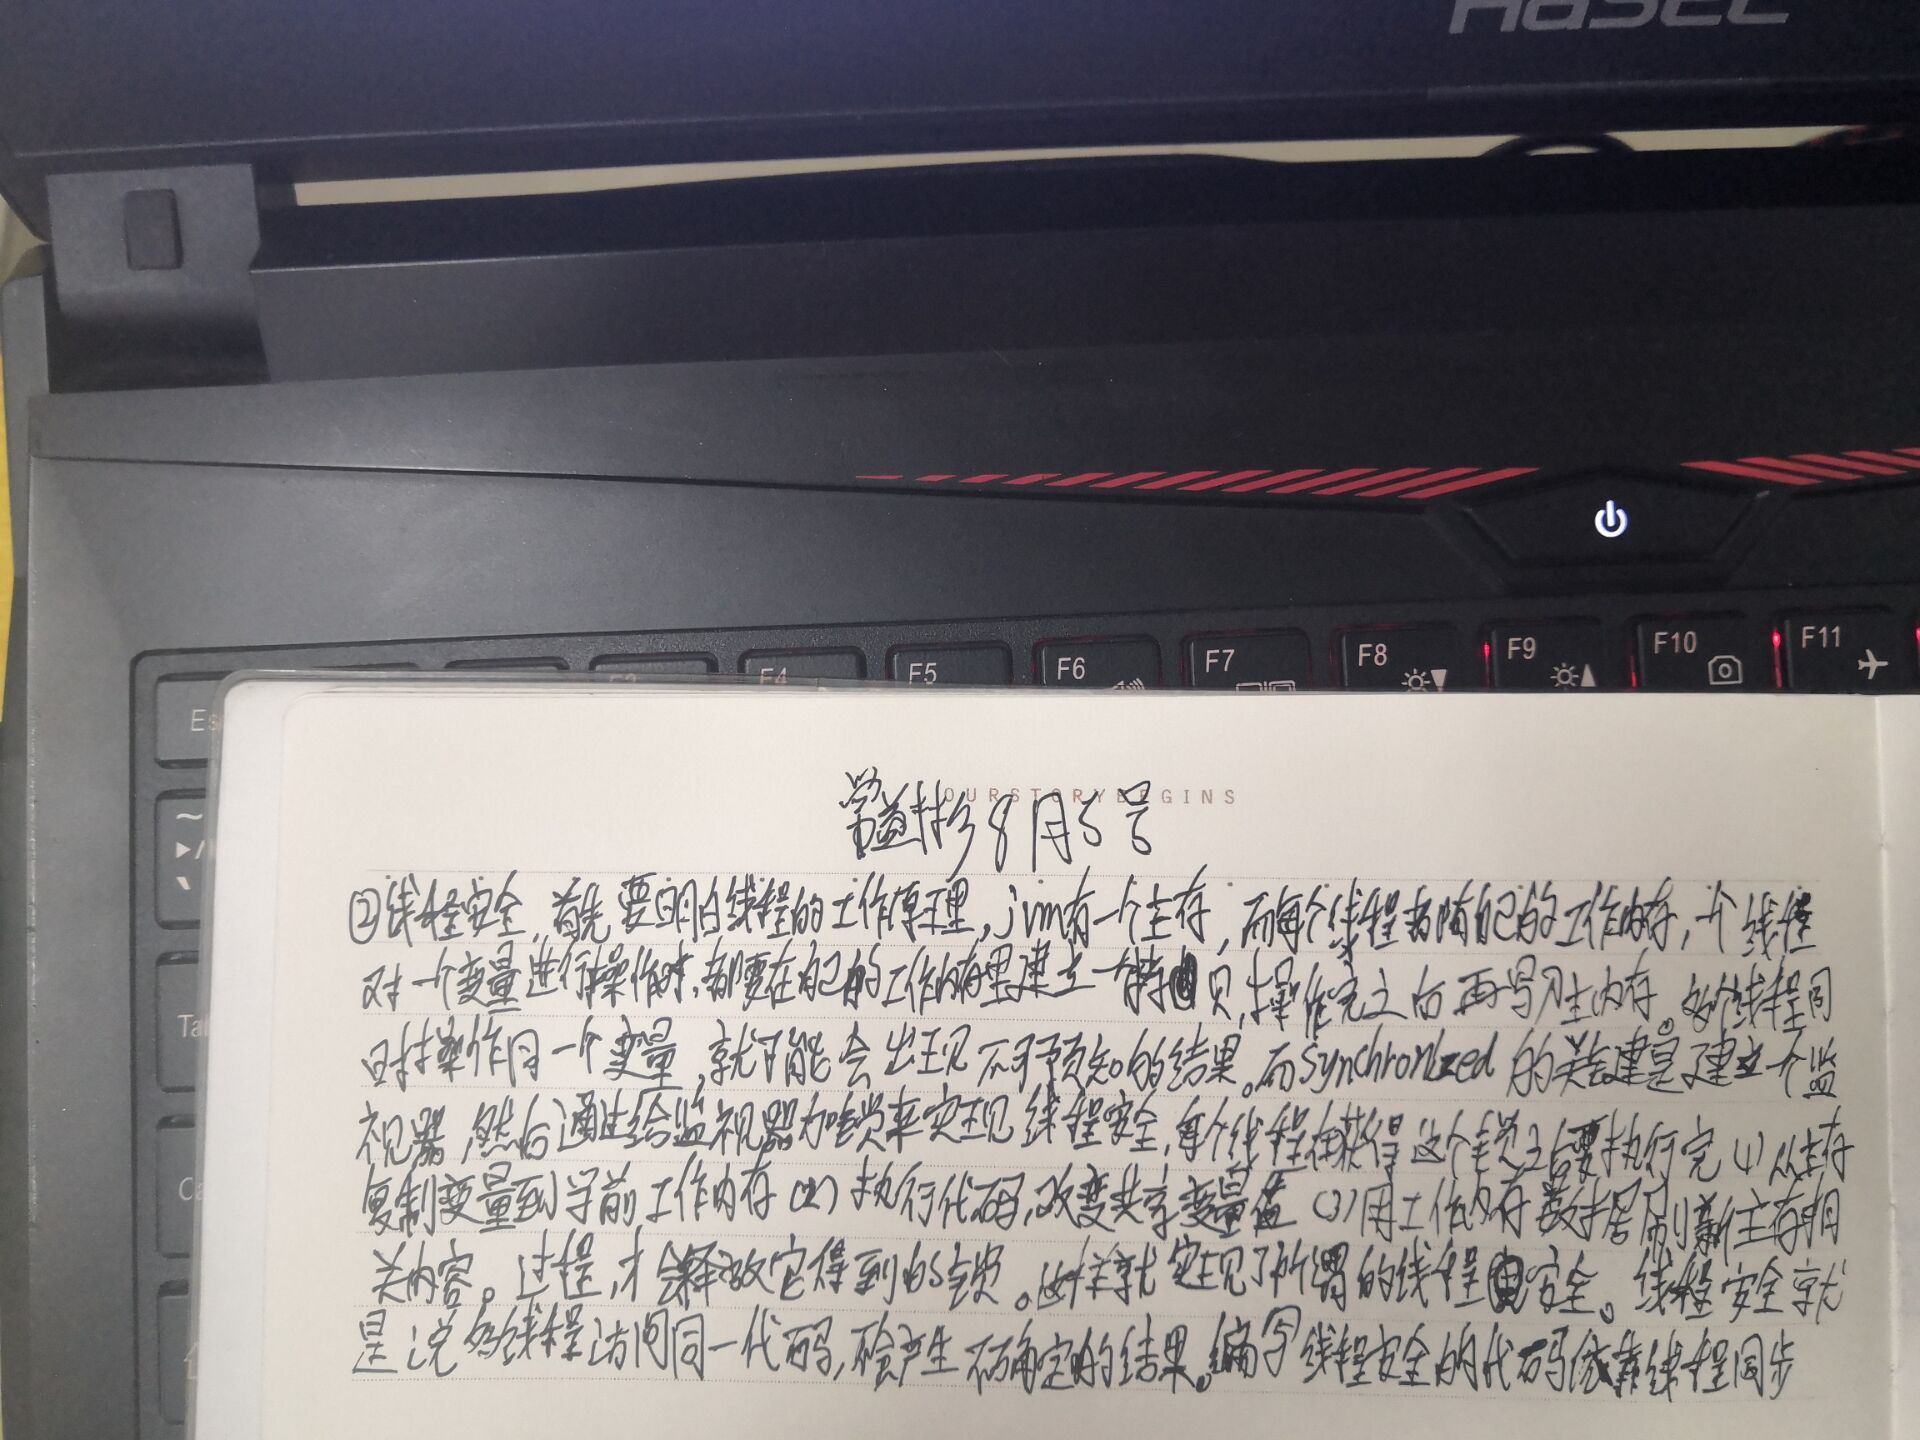 Hasee
F4
F5
F6
F7
F8
F9
F10
F11
Es
Ta
Ca
OURSTORYBEGINS
8月5号
②线程安全,首先要明白线程的工作原理,jvm有一个主存,而每个线程都有自己的工作内存,一个线程
对一个变量进行操作时,都要在自己的工作内存里建立一个拷贝,操作完之后再写入主内存。多个线程同
时操作同一个变量,就可能会出现不可预知的结果。而synchronized的关键是建立一个监
视器,然后通过给监视器加锁来实现线程安全,每个线程在获得这个锁之后要执行完(1)从主存
复制变量到当前工作内存(2)执行代码,改变共享变量值(3)用工作内存数据刷新主存相
关内容。过程,才会释放它得到的锁。这样就实现了所谓的线程安全。线程安全就
是说多线程访问同一代码,不会产生不确定的结果。编写线程安全的代码依靠线程同步